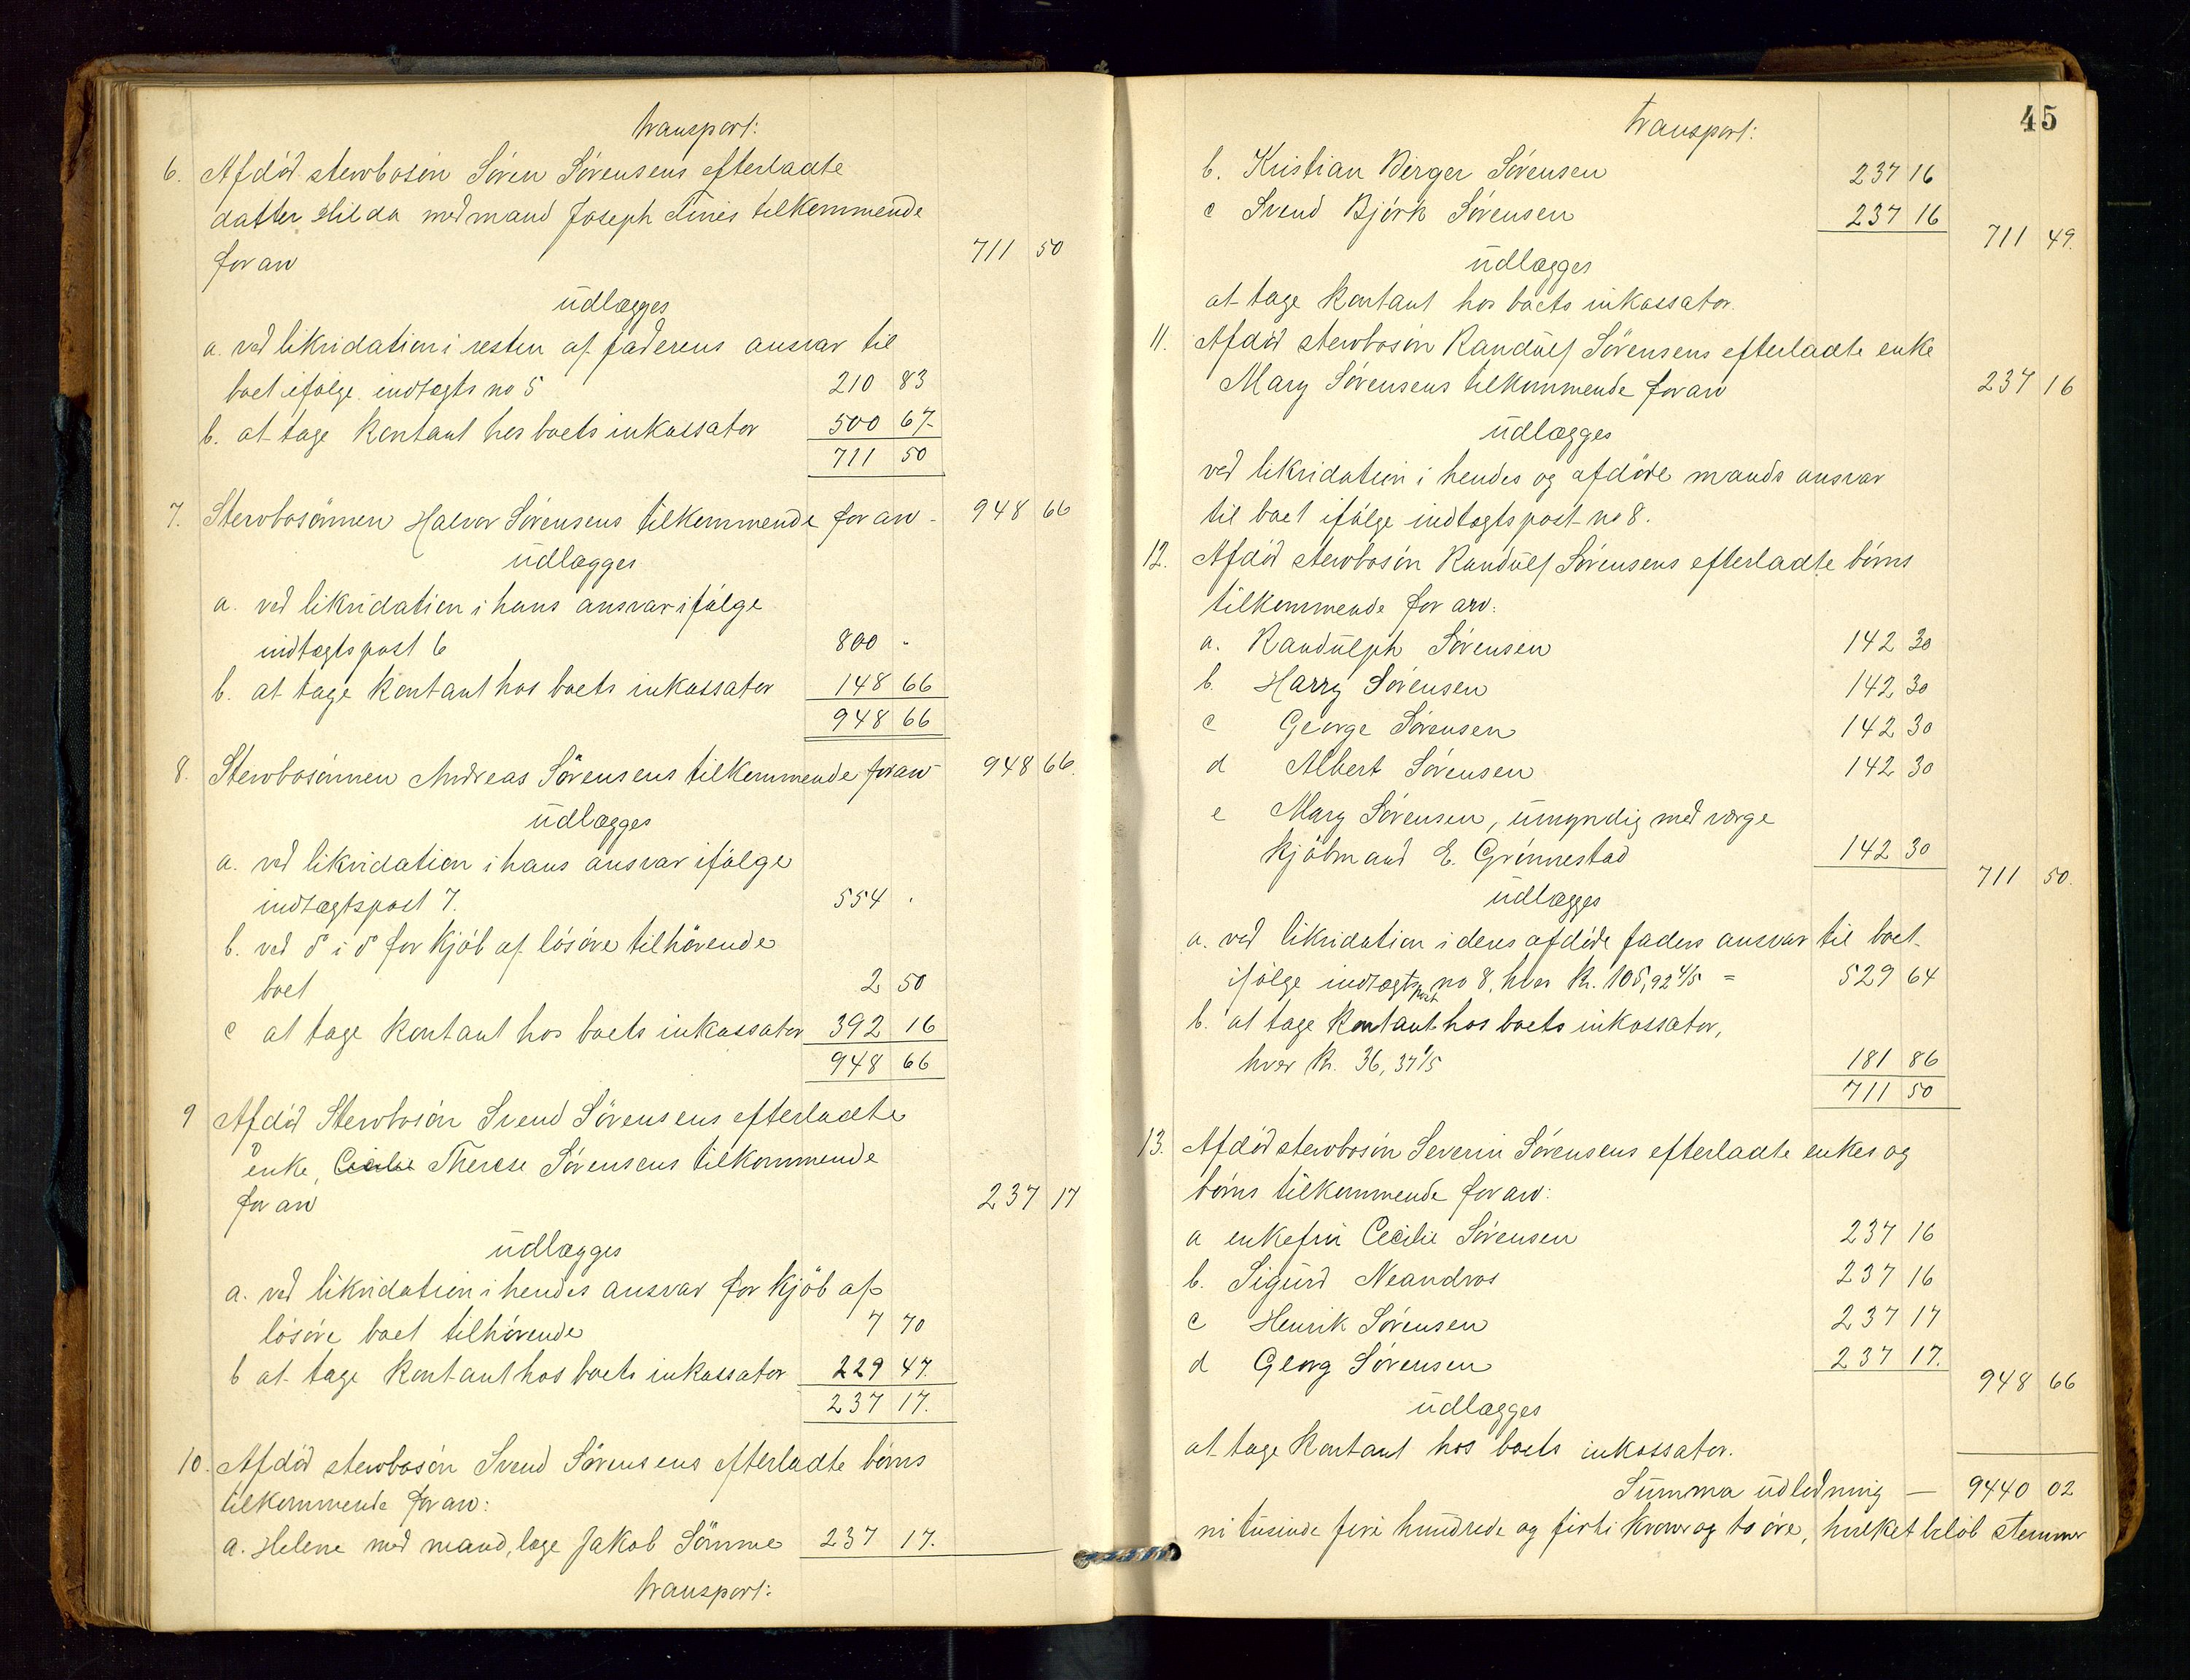 transport:
6. Afdöd stervbosön Sören Sörensens efterladte
datter Hilda med mand Joseph Tinis tilkommende
for arv 711 50
udlægges
a. ved likvidation i resten af faderens ansvar til
boet ifølge indtægts no 5 210 83
b. at tage kontant hos boets inkassator 500 67
711 50
7. Stervbosönnen Halvor Sörensens tilkommende for arv - 948 66
udlægges
a. ved likvidation i hans ansvar ifölge
indtægtspost 6 800 "
b. at tage kontant hos boets inkassator 148 66
948 66
8. Stervbosönnen Andreas Sörensens tilkommende for arv 948 66.
udlægges
a. ved likvidation i hans ansvar ifölge
indtægtspost 7. 554 "
b. ved do i do for kjöb af lösöre tilhörende
boet 2 50
c at tage kontant hos boets inkassator 392 16
948 66
9 Afdöd Stervbosön Svend Sörensens efterladte
enke, Cecilie Therese Sörensens tilkommende
for arv 237 17
udlægges
a. ved likvidation i hendes ansvar for kjöb af
lösöre boet tilhörende 7 70
b at tage kontant hos boets inkassator 229 47.
237 17.
10. Afdöd stervbosön Svend Sörensens efterladte börns
tilkommende for arv:
a. Helene med mand, læge Jakob Sömme 237 17.
transport:
45
transport:
b. Kristian Birger Sörensen 237 16
c Svend Björk Sörensen 237 16
711 49.
udlægges
at tage kontant hos boets inkassator.
11. Afdöd stervbosön Randulf Sörensens efterladte enke
Mary Sörensens tilkommende for arv 237 16
udlægges
ved likvidation i hendes og afdöde mands ansvar
til boet ifölge indtægtspost no 8.
12. Afdöd stervbosön Randulf Sörensens efterladte börns
tilkommende for arv:
a. Randulph Sörensen 142 30
b. Harry Sörensen 142 30
c George Sörensen 142 30
d Albert Sörensen 142 30
e Mary Sörensen, umyndig med værge
kjöbmand E. Grönnestad 142 30
711 50.
udlægges
a. ved likvidation i deres afdöde faders ansvar til boet
ifölge indtægtspost no 8, hver Kr. 105,92 4/5 = 529 64
b. at tage kontant hos boets inkassator,
hver Kr. 36,37 1/5 181 86
711 50
13. Afdöd stervbosön Severin Sörensens efterladte enkes og
börns tilkommende for arv:
a enkefru Cecilie Sörensen 237 16
b. Sigurd Neandros 237 16
c Henrik Sörensen 237 17
d Georg Sörensen 237 17.
948 66
udlægges
at tage kontant hos boets inkassator.
Summa udlodning — 9440 02
ni tusinde fire hundrede og firti kroner og to öre, hvilket belöb stemmer